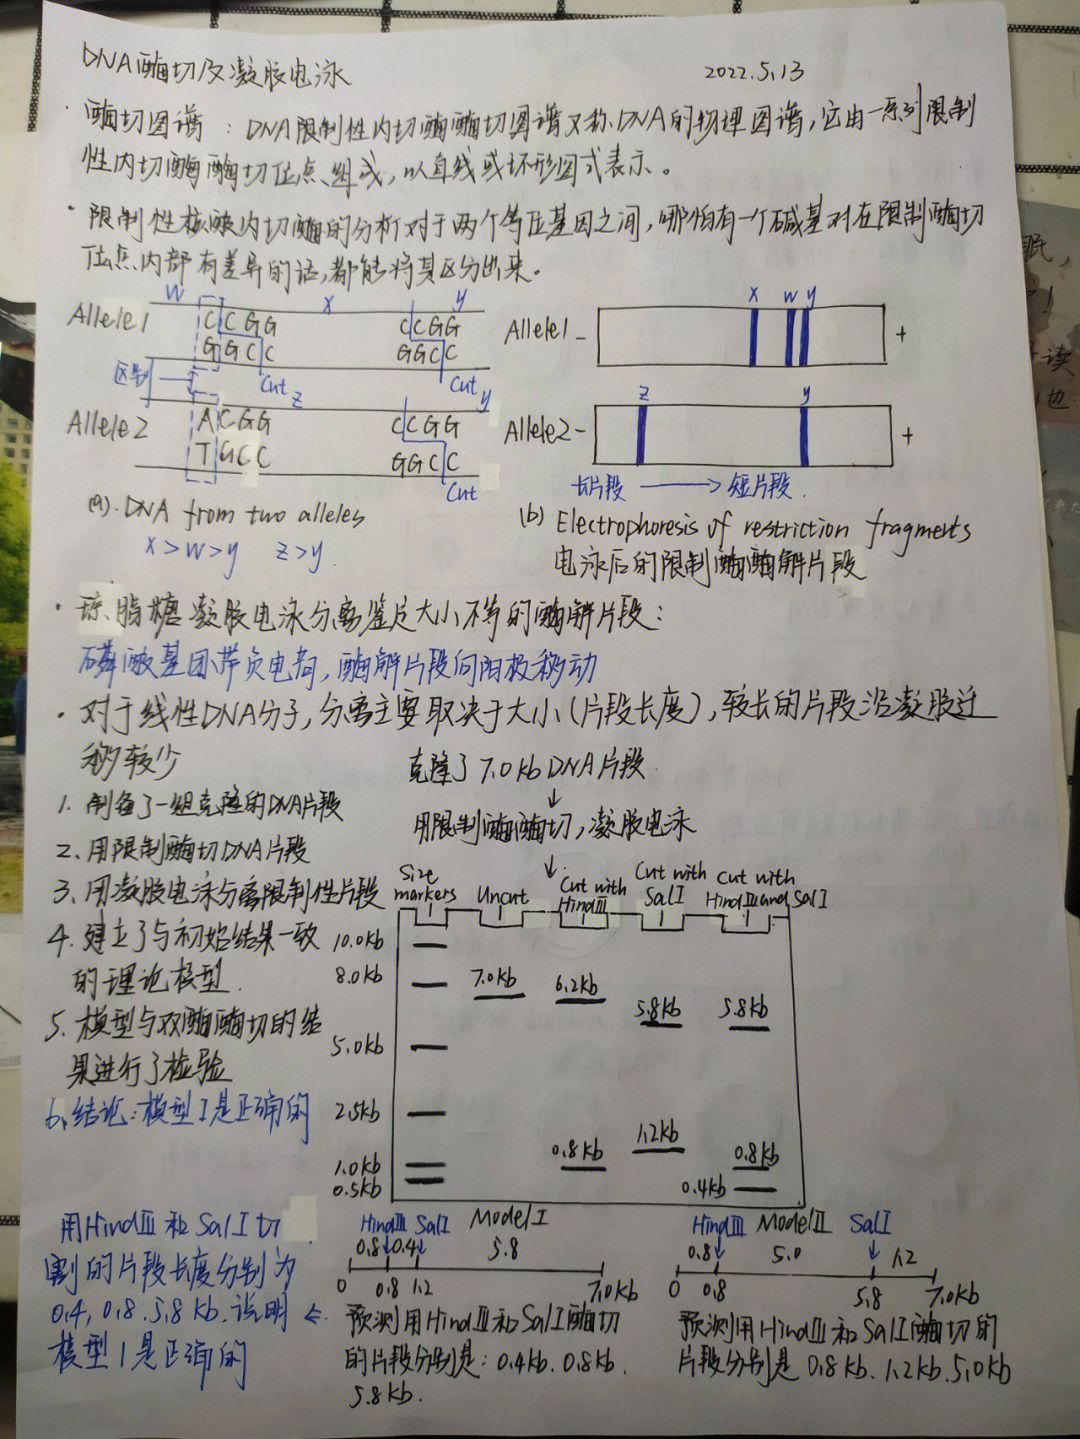 DNA酶切及凝胶电泳
2022.5.13
· 酶切图谱：DNA限制性内切酶酶切图谱又称DNA的物理图谱，它由一系列限制
性内切酶酶切位点组成，以直线或环形图式表示。
· 限制性核酸内切酶的分析对于两个等位基因之间，哪怕有一个碱基对在限制酶切
位点内部有差异的话，都能将其区分出来。
W X y
Allele1 C CGG CCGG
G GCC GGCC
区别 Cut Cut
z y
Allele2 A CGG CCGG
T GCC GGCC
Cut
(a). DNA from two alleles
X>W>y z>y
X W y
Allele1 - +
z y
Allele2 - +
长片段 → 短片段
(b) Electrophoresis of restriction fragments
电泳后的限制酶酶解片段
· 琼脂糖凝胶电泳分离鉴定大小不等的酶解片段：
磷酸基团带负电荷，酶解片段向阳极移动
· 对于线性DNA分子，分离主要取决于大小（片段长度），较长的片段沿凝胶迁
移较少
1. 制备了一组克隆的DNA片段
2、用限制酶切DNA片段
3、用凝胶电泳分离限制性片段
4. 建立了与初始结果一致
的理论模型.
5. 模型与双酶酶切的结
果进行了检验
6、结论：模型I是正确的
克隆了7.0kb DNA片段
↓
用限制酶酶切，凝胶电泳
↓
Size markers
Uncut
Cut with HindⅢ
Cut with SalI
Cut with HindⅢ and SalI
10.0kb
8.0kb 7.0kb 6.2kb
5.8kb 5.8kb
5.0kb
2.5kb
0.8kb 1.2kb 0.8kb
1.0kb
0.5kb 0.4kb
用HindⅢ和SalI切
割的片段长度分别为
0.4, 0.8, 5.8 kb. 说明 ⇐
模型1是正确的
HindⅢ SalI Model I
0.8 0.4 5.8
0 0.8 1.2 7.0kb
预测用HindⅢ和SalI酶切
的片段分别是：0.4kb. 0.8kb.
5.8kb.
HindⅢ Model Ⅱ SalI
0.8 5.0 1.2
0 0.8 5.8 7.0kb
预测用HindⅢ和SalI酶切的
片段分别是 0.8kb. 1.2kb. 5.0kb
读
也